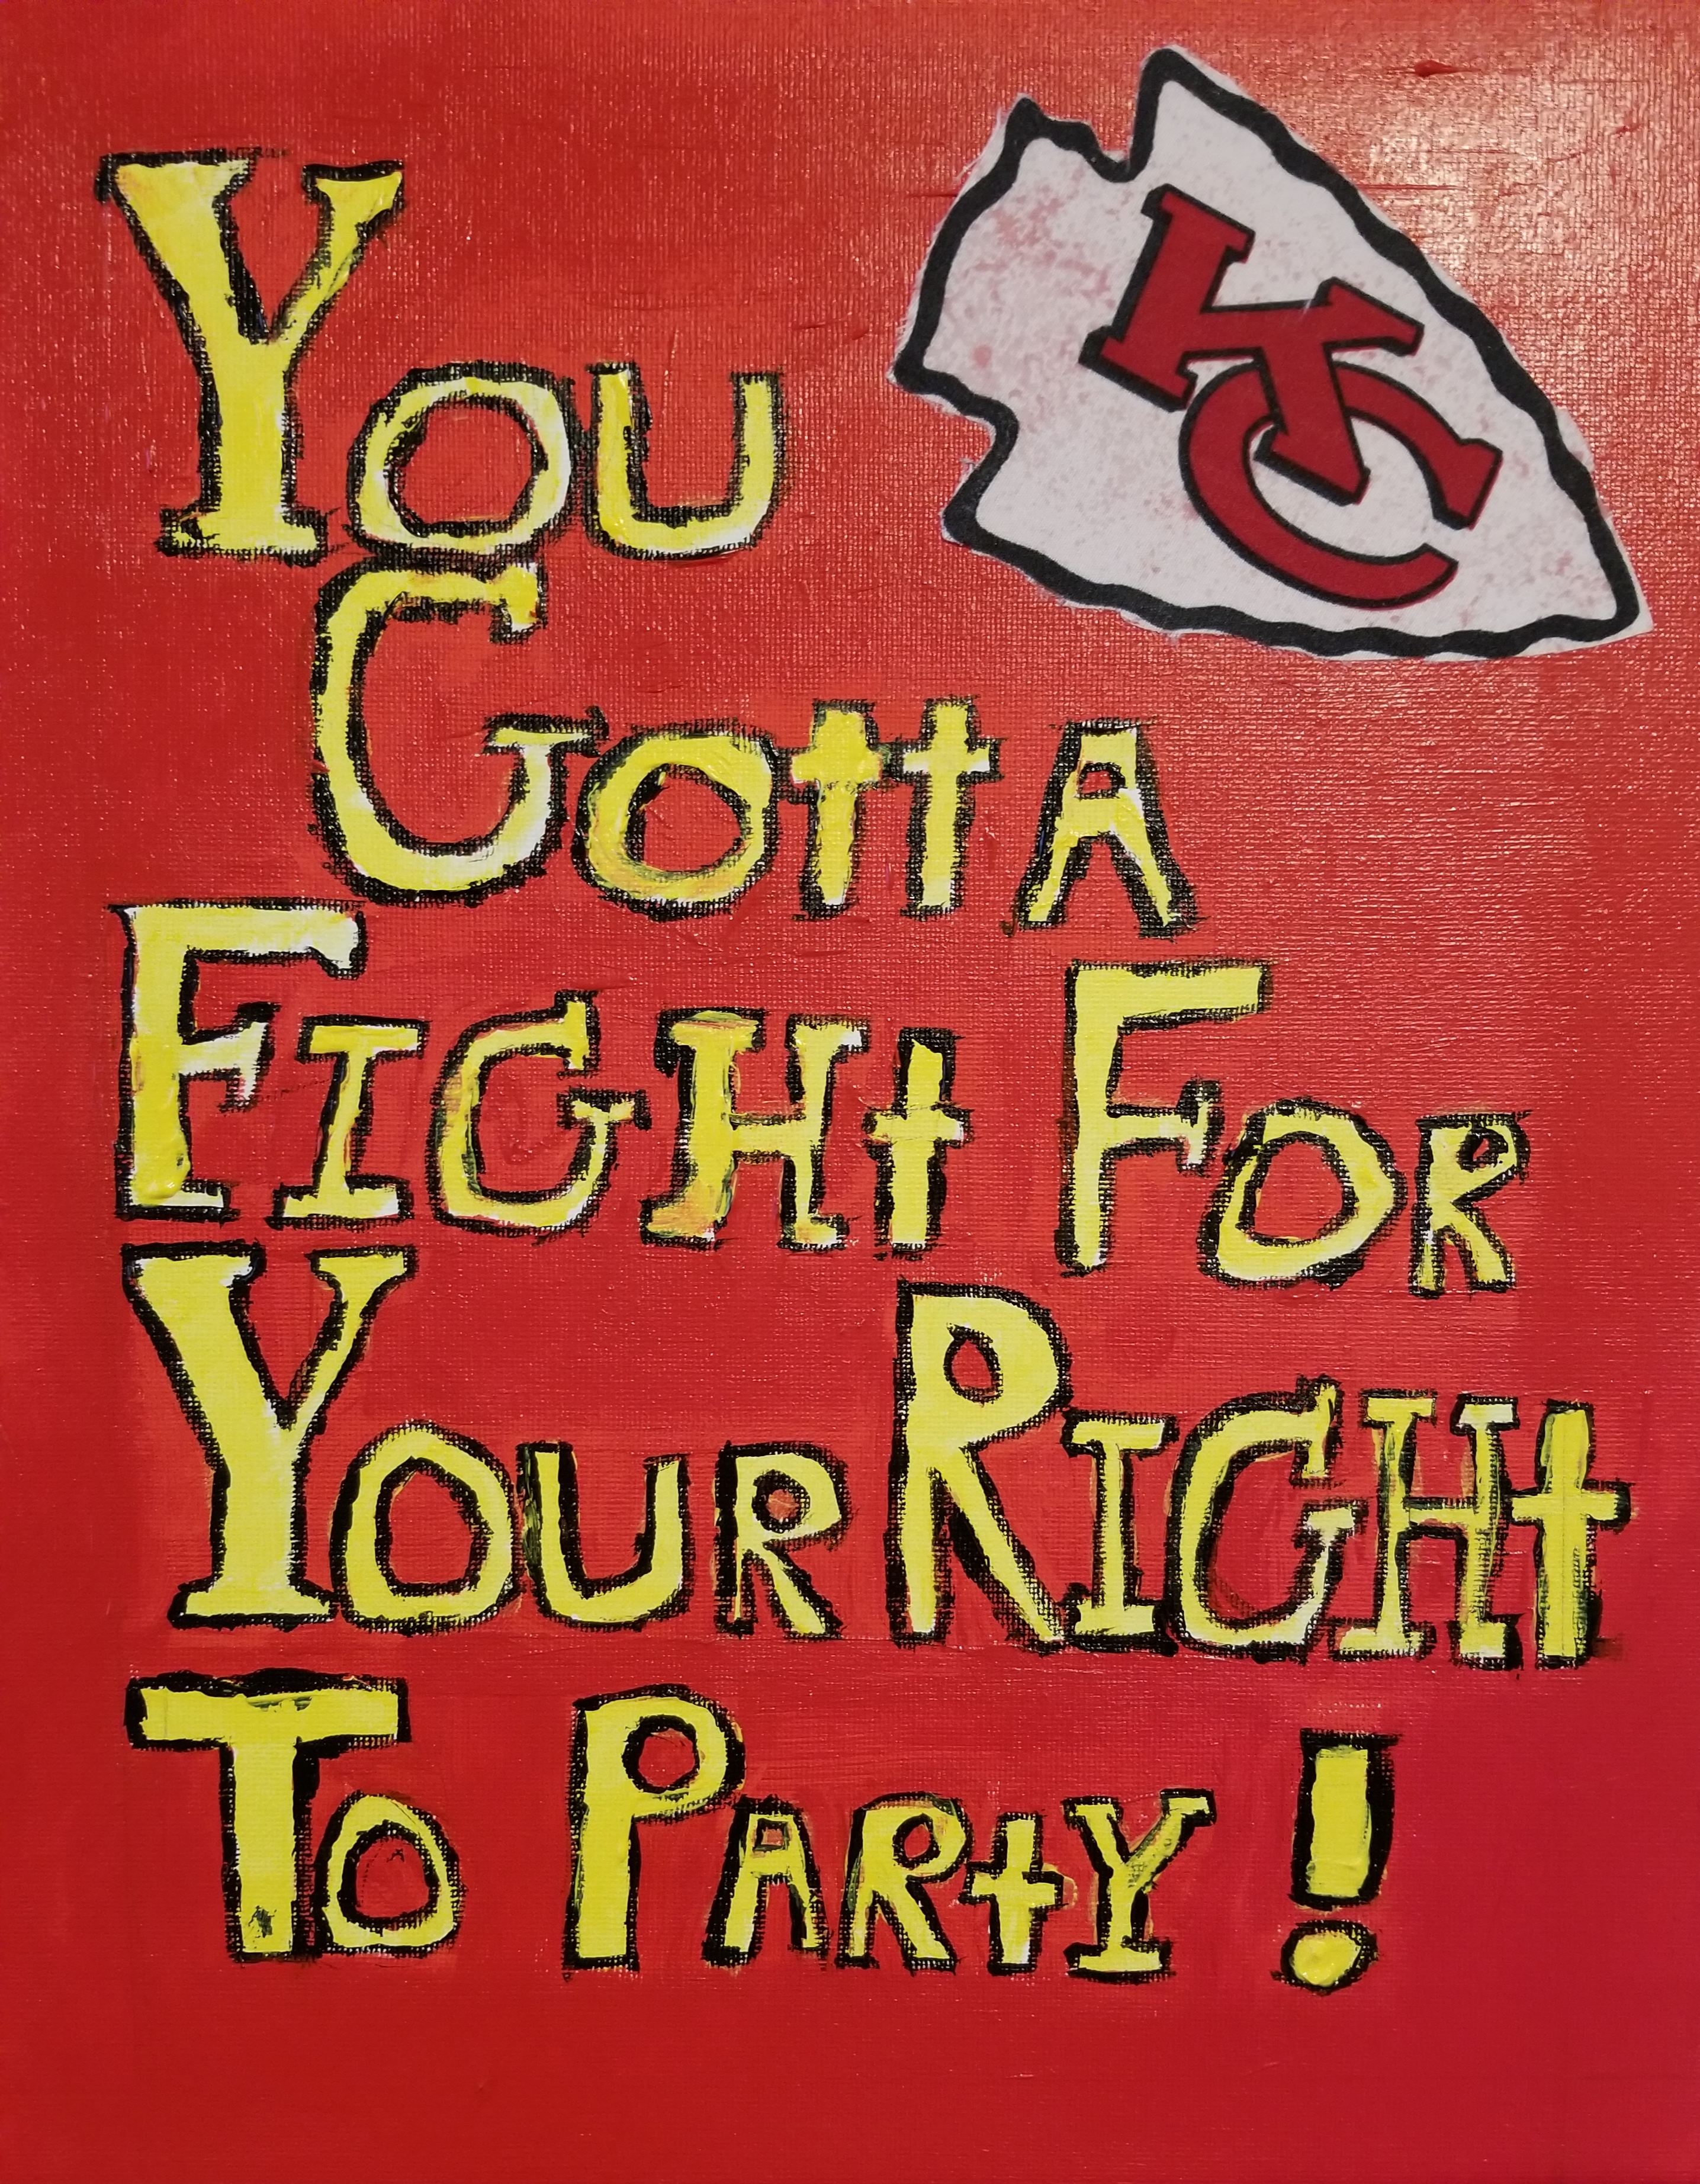 KC
YOU
GOttA
FIGHt FOR
YOUR RIGHt
TO PARtY!